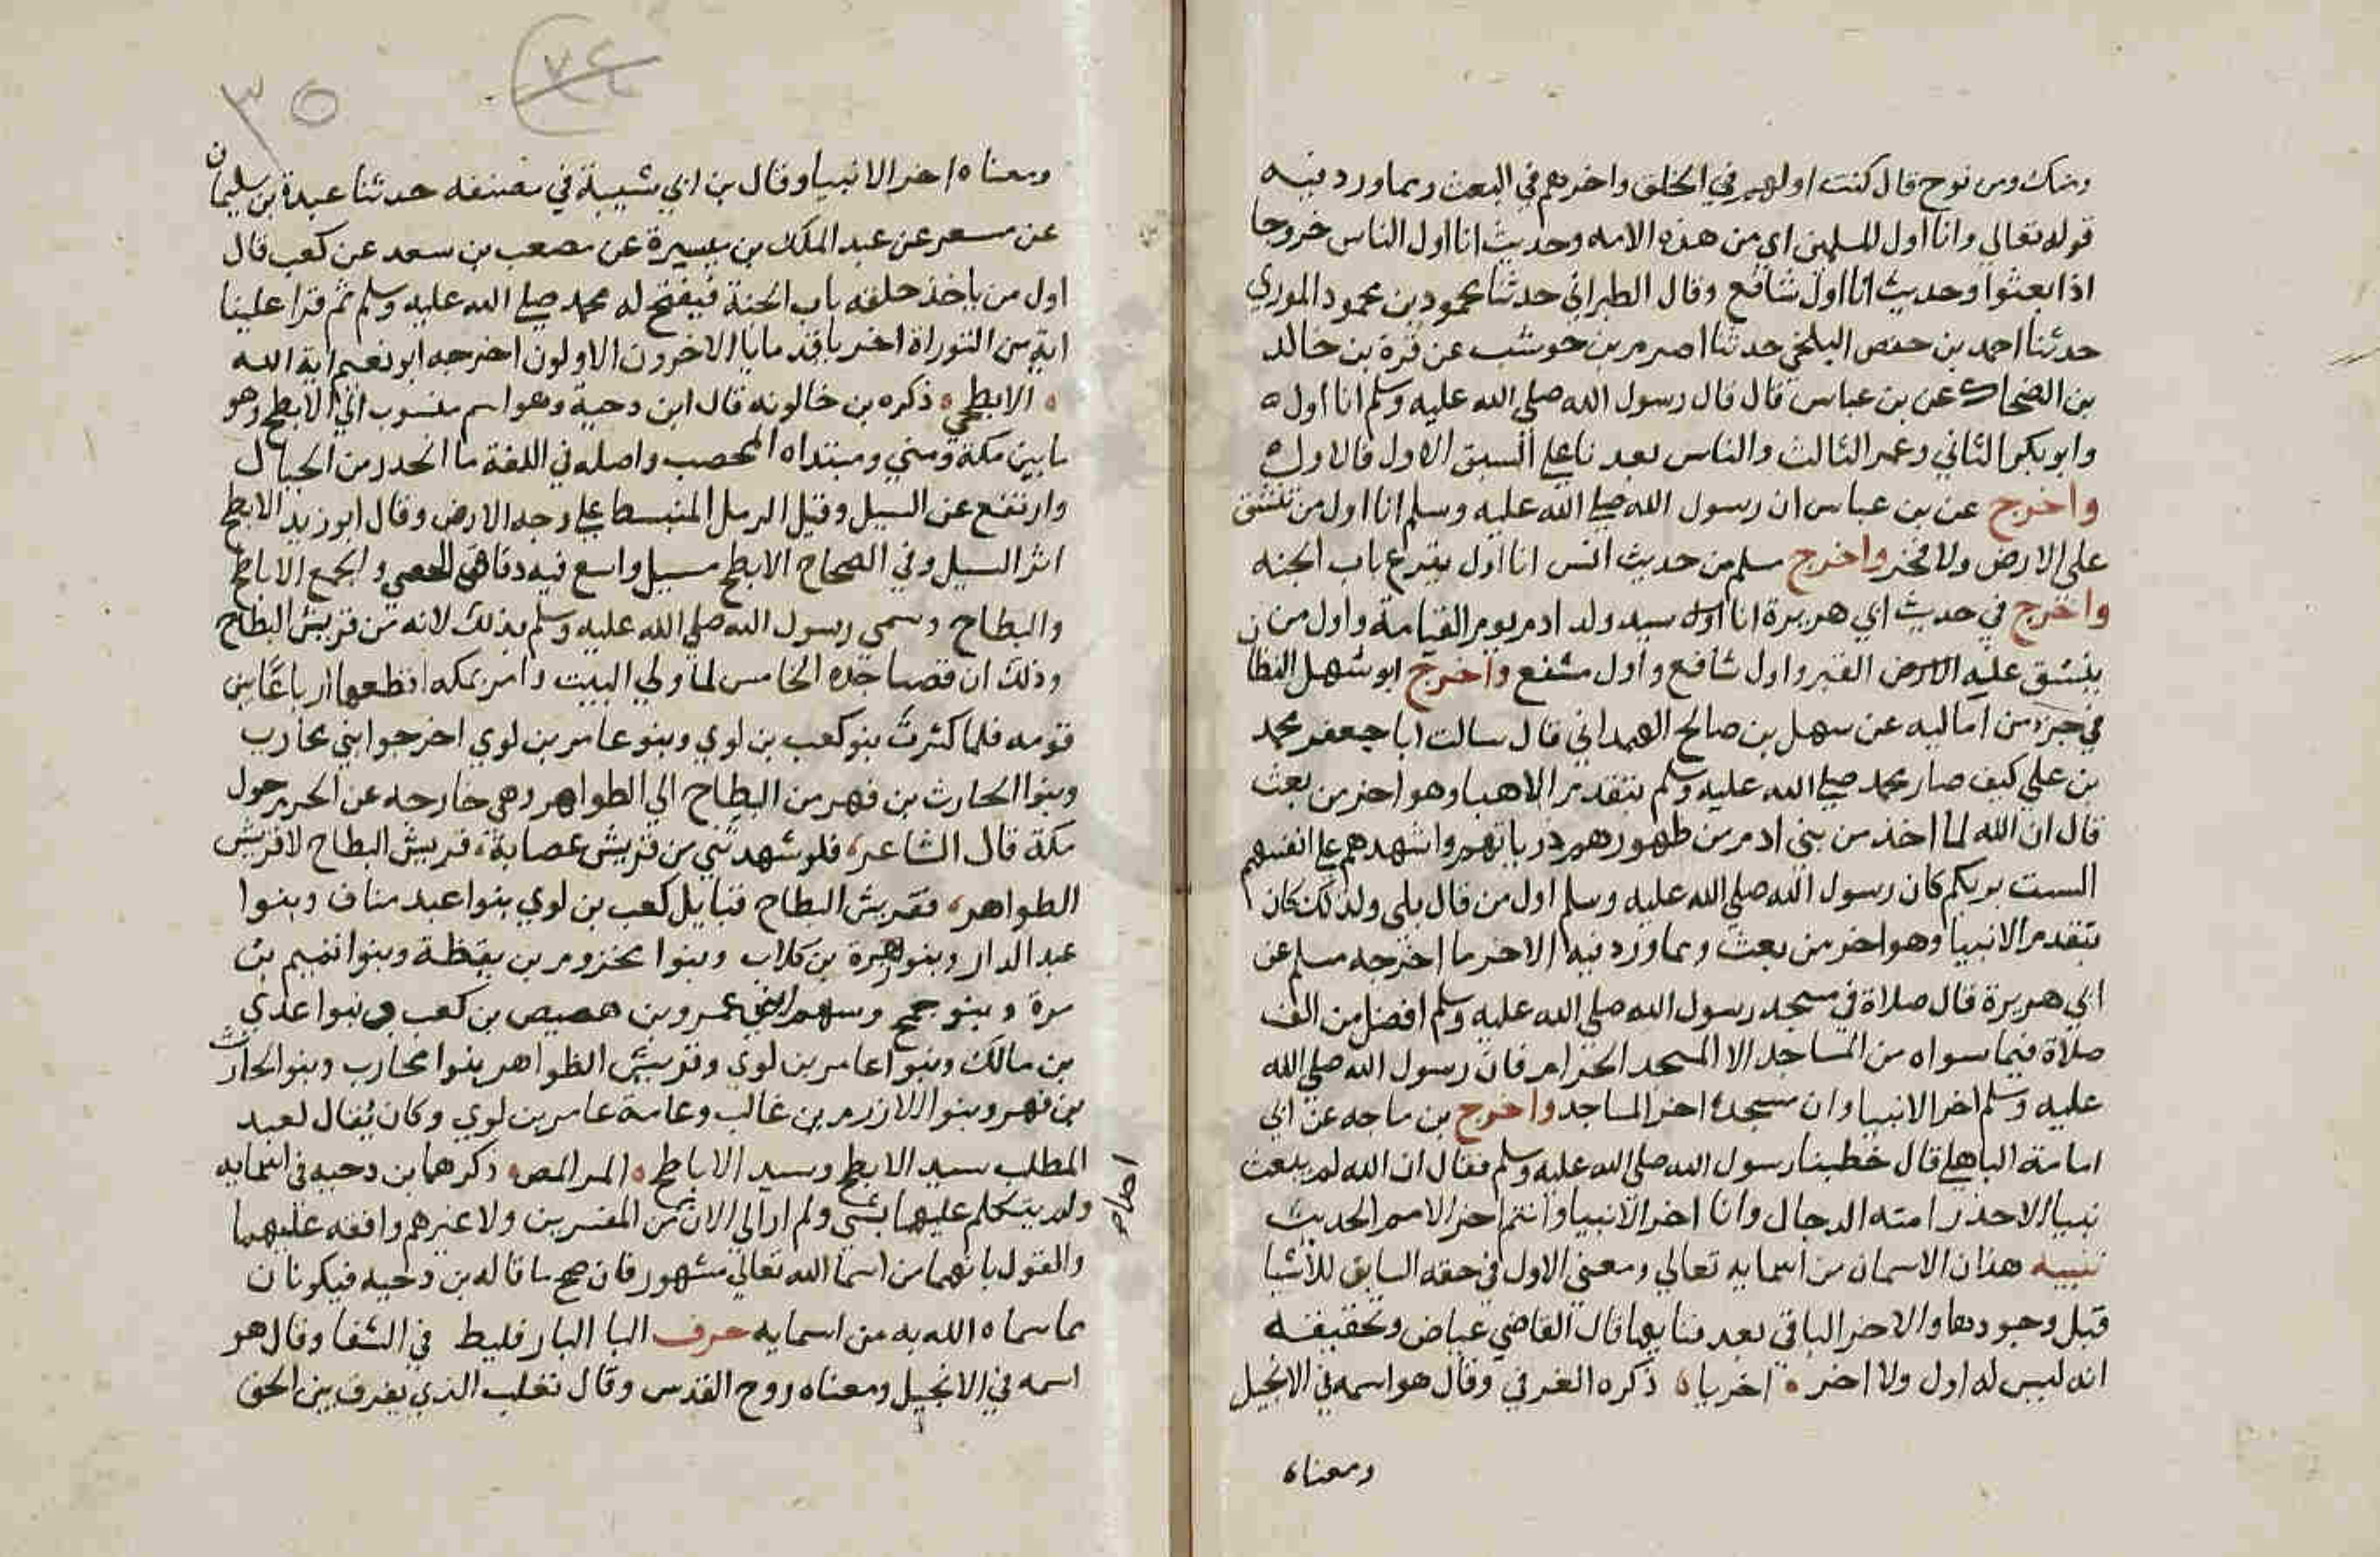 ومنك ومن نوح قال كنت اولهم في الخلق واخرهم في البعث ومما ورد فيه
قوله تعالي وانا اول المسلمين اي من هذه الامه وحديث انا اول الناس خروجا
اذا بعثوا وحديث انا اول شافع وقال الطبراني حدثنا محمود بن محمود الموري
حدثنا احمد بن حفص البلخي حدثنا اصرم بن حوشب عن قرة بن خالد
بن الضحاك عن بن عباس قال قال رسول الله صلي الله عليه وسلم انا اول
وابو بكر الثاني وعمر الثالث والناس بعدنا علي السبق الاول فالاول
واخرج عن بن عباس ان رسول الله صلي الله عليه وسلم انا اول من تنشق
علي الارض ولا فخر واخرج مسلم من حديث انس انا اول يقرع باب الجنه
واخرج في حديث ابي هريرة انا اول سيد ولد ادم يوم القيامة واول من
ينشق عليه الارض القبر واول شافع واول مشفع واخرج ابو سهل القطان
في جزء من اماليه عن سهل بن صالح الهمداني قال سالت ابا جعفر محمد
بن علي كيف صار محمد صلي الله عليه وسلم يتقدم الانبيا وهو اخر من بعث
قال ان الله لما اخذ من بني ادم من ظهورهم ذرياتهم واشهدهم علي انفسهم
الست بربكم كان رسول الله صلي الله عليه وسلم اول من قال بلي ولذلك كان
يتقدم الانبيا وهو اخر من بعث ومما ورد فيه الاخر ما اخرجه مسلم عن
ابي هريرة قال صلاة في مسجد رسول الله صلي الله عليه وسلم افضل من الف
صلاة فيما سواه من المساجد الا المسجد الحرام فان رسول الله صلي الله
عليه وسلم اخر الانبيا وان مسجده اخر المساجد واخرج بن ماجه عن ابي
امامة الباهلي قال خطبنا رسول الله صلي الله عليه وسلم فقال ان الله لم يبعث
نبيا الا حذر امته الدجال وانا اخر الانبيا وانتم اخر الامم الحديث
تنبيه هذان الاسمان من اسمايه تعالي ومعني الاول في حقه السابق للاشيا
قبل وجودها والاخر الباقي بعد فنايها قال القاضي عياض وتحقيقه
انه ليس له اول ولا اخر اخريا ذكره العزفي وقال هو اسمه في الانجيل
ومعناه
٣٥
٧٤
ومعناه اخر الانبيا وقال بن ابي شيبة في مصنفه حدثنا عبدة بن سليمان
عن مسعر عن عبد الملك بن ميسرة عن مصعب بن سعد عن كعب قال
اول من ياخذ حلقه باب الجنة فيفتح له محمد صلي الله عليه وسلم ثم قرا علينا
اية من التوراة اخريا قدمايا الاخرون الاولون اخرجه ابو نعيم اية الله
الابطحي ذكره بن خالويه قال ابن دحية وهو اسم منسوب الي الابطح وهو
ما بين مكة ومني ومبتداه المحصب واصله في اللغة ما انحدر من الجبال
وارتفع عن السيل وقيل الرمل المنبسط علي وجه الارض وقال ابو زيد الابطح
اثر السيل وفي الصحاح الابطح مسيل واسع فيه دقاق الحصي والجمع الاباطح
والبطاح وسمي رسول الله صلي الله عليه وسلم بذلك لانه من قريش البطاح
وذلك ان قصيا جده الخامس لما ولي البيت وامر مكه اقطعها ارباعا بين
قومه فلما كثرت بنو كعب بن لوي وبنو عامر بن لوي اخرجوا بني محارب
وبنوا الحارث بن فهر من البطاح الي الظواهر وهي خارجه عن الحرم حول
مكة قال الشاعر فلو شهدتني من قريش عصابة قريش البطاح لا قريش
الظواهر فقريش البطاح قبايل كعب بن لوي بنوا عبد مناف وبنوا
عبد الدار وبنو زهرة بن كلاب وبنوا مخزوم بن يقظة وبنوا تميم بن
مرة وبنو جمح وسهم ابني عمرو بن هصيص بن كعب وبنوا عدي
بن مالك وبنوا عامر بن لوي وقريش الظواهر بنوا محارب وبنو الحارث
بن فهر وبنوا الازرم بن غالب وعامة عامر بن لوي وكان يقال لعبد
المطلب سيد الابطح وسيد الاباطح المر المص ذكرهما بن دحيه في اسمايه
ولم يتكلم عليهما بشي ولم ار الي الان من المفسرين ولا غيرهم وافقه عليهما
والقول بانهما من اسما الله تعالي مشهور فان صح ما قاله بن دحيه فيكونان
مما سماه الله به من اسمايه حرف البا البارقليط في الشفا وقال هو
اسمه في الانجيل ومعناه روح القدس وقال ثعلب الذي يفرق بين الحق